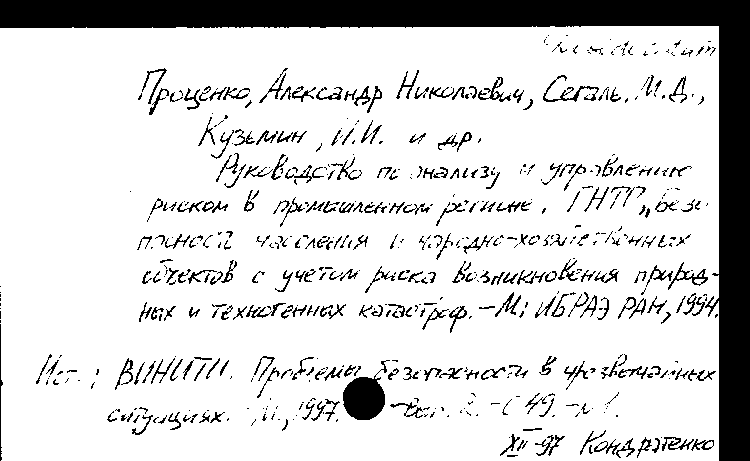 Desideratum
Проценко, Александр Николаевич, Сегаль, М.Д.,
Кузьмин, И.И. и др.
Руководство по анализу и управлению
риском в промышленном регионе. ГНТП „Безо-
пасность населения и народно-хозяйственных
объектов с учетом риска возникновения природ-
ных и техногенных катастроф. – М: ИБРАЭ РАН, 1994.
Ист.: ВИНИТИ. Проблемы безопасности в чрезвычайных
ситуациях. – М., 1997. – Вып. 2. – С 49. – №1.
XII-97 Кондратенко